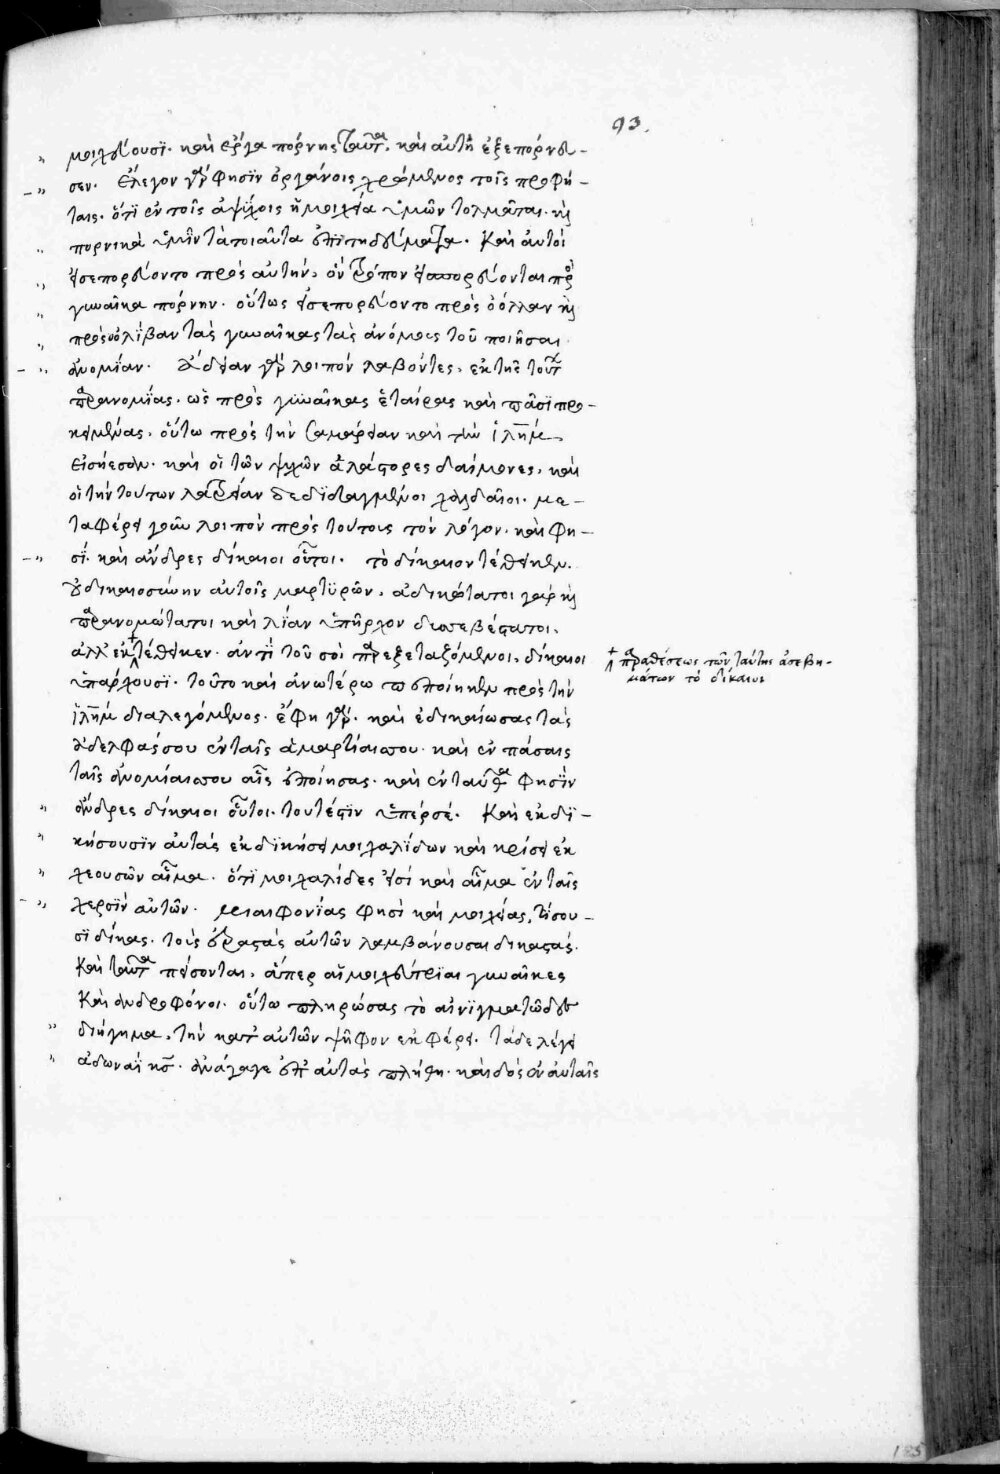 93.
μοιχεύουσϊ. καὶ ἔργα πόρνης ταῦτα. καὶ αὐτὴ ἐξεπόρνευ-
σεν. ἔλεγον γάρ φησϊν ὀργάνοις χρώμενος τοῖς προφή-
ταις. ὅτϊ ἐν τοῖς ἀψύχοις ἡ μοιχεία ὑμῶν τολμᾶται. καὶ
πορνικὰ ὑμῖν τὰ τοιαῦτα ἐπϊτηδεύματα. Καὶ αὐτοὶ
εἰσεπορεύοντο πρὸς αὐτήν, ὃν τρόπον εἰσπορεύονται πρὸς
γυναῖκα πόρνην. οὕτως εἰσεπορεύοντο πρὸς ὀόλλαν καὶ
πρὸς ὀλϊβαν τὰς γυναῖκας τὰς ἀνόμους τοῦ ποιῆσαι
ἀνομίαν. ἄδειαν γάρ λοιπὸν λαβόντες, ἐκ τῆς τούτων
παρανομίας. ὡς πρὸς γυναῖκας ἑταίρας καὶ πᾶσϊ προ-
κειμένας. οὕτω πρὸς τὴν Σαμάρειαν καὶ τὴν ἱλῆμ
εἰσήεσαν. καὶ οἱ τῶν ψυχῶν ἀλάστορες δαίμονες, καὶ
οἱ τὴν τούτων λατρείαν δεδϊδαγμένοι χαλδαῖοι. με-
ταφέρει γοῦν λοιπὸν πρὸς τούτους τὸν λόγον. καὶ φη-
σΐ. καὶ ἄνδρες δίκαιοι οὗτοι. τὸ δίκαιον τέθεικεν.
οὐ δικαιοσύνην αὐτοῖς μαρτυρῶν, ἀδικώτατοι γὰρ καὶ
παρανομώτατοι καὶ λΐαν ὑπῆρχον δυσσεβέστατοι.
ἀλλ' ἐκ τέθεικεν. ἀντΐ τοῦ σοὶ παρεξεταζόμενοι, δίκαιοι
+ παραθέσεως τῶν ταύτης ἀσεβη-
μάτων τὸ δίκαιοι
ὑπάρχουσϊ. τοῦτο καὶ ἀνωτέρω πεποίηκεν πρὸς τὴν
ἱλῆμ διαλεγόμενος. ἔφη γάρ. καὶ ἐδικαίωσας τὰς
ἀδελφάς σου ἐν ταῖς ἁμαρτίαις σου. καὶ ἐν πάσαις
ταῖς ἀνομίαις σου αἷς ἐποίησας. καὶ ἐνταῦθα φησΐν
ἄνδρες δίκαιοι οὗτοι. τουτέστϊν ὑπέρ σέ. Καὶ ἐκδϊ-
κήσουσϊν αὐτάς ἐκδϊκήσει μοιχαλΐδων καὶ κρίσει ἐκ
χεουσῶν αἷμα. ὅτϊ μοιχαλίδες εἰσί καὶ αἷμα ἐν ταῖς
χερσΐν αὐτῶν. μιαιφονίας φησὶ καὶ μοιχείας, τίσου-
σϊ δίκας. τοὺς ἐραστὰς αὐτῶν λαμβάνουσαι δικαστάς.
Καὶ ταῦτα πείσονται, ἅπερ αἱ μοιχεύτρϊαι γυναῖκες
Καὶ ἀνδροφόνοι. οὕτω πληρώσας τὸ αἰνϊγματῶδες
διήγημα, τὴν κατ' αὐτῶν ψῆφον ἐκφέρει. τάδε λέγει
ἀδωναῒ κς. ἀνάγαγε ἐπ' αὐτὰς πλήθη. καὶ δὸς ἐν αὐταῖς
185